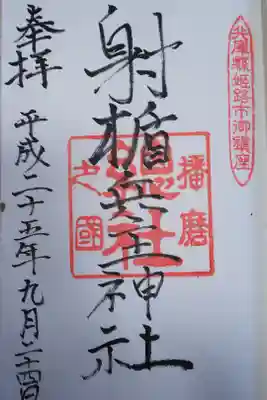 兵庫縣姫路市御鎮座
射楯兵主神社
播磨
之國
總社
奉拝
平成二十五年九月二十四日